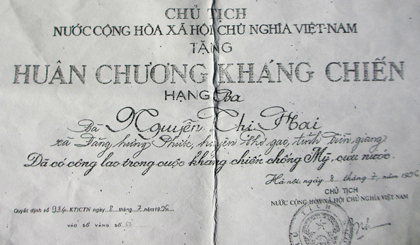 CHỦ TỊCH
NƯỚC CỘNG HÒA XÃ HỘI CHỦ NGHĨA VIỆT-NAM
TẶNG
HUÂN CHƯƠNG KHÁNG CHIẾN
HẠNG Ba
Bà Nguyễn Thị Mai
xã Đăng hưng Phước, huyện chợ gạo, tỉnh Tiền giang
Đã có công lao trong cuộc kháng chiến chống Mỹ, cứu nước.
Hà nội, ngày 8 tháng 7 năm
CHỦ TỊCH
NƯỚC CỘNG HÒA XÃ HỘI CHỦ NGHĨA VIỆT NAM
Quyết định số 934 KT/CTN ngày 8 tháng 7 năm
VÀO SỔ VÀNG SỐ